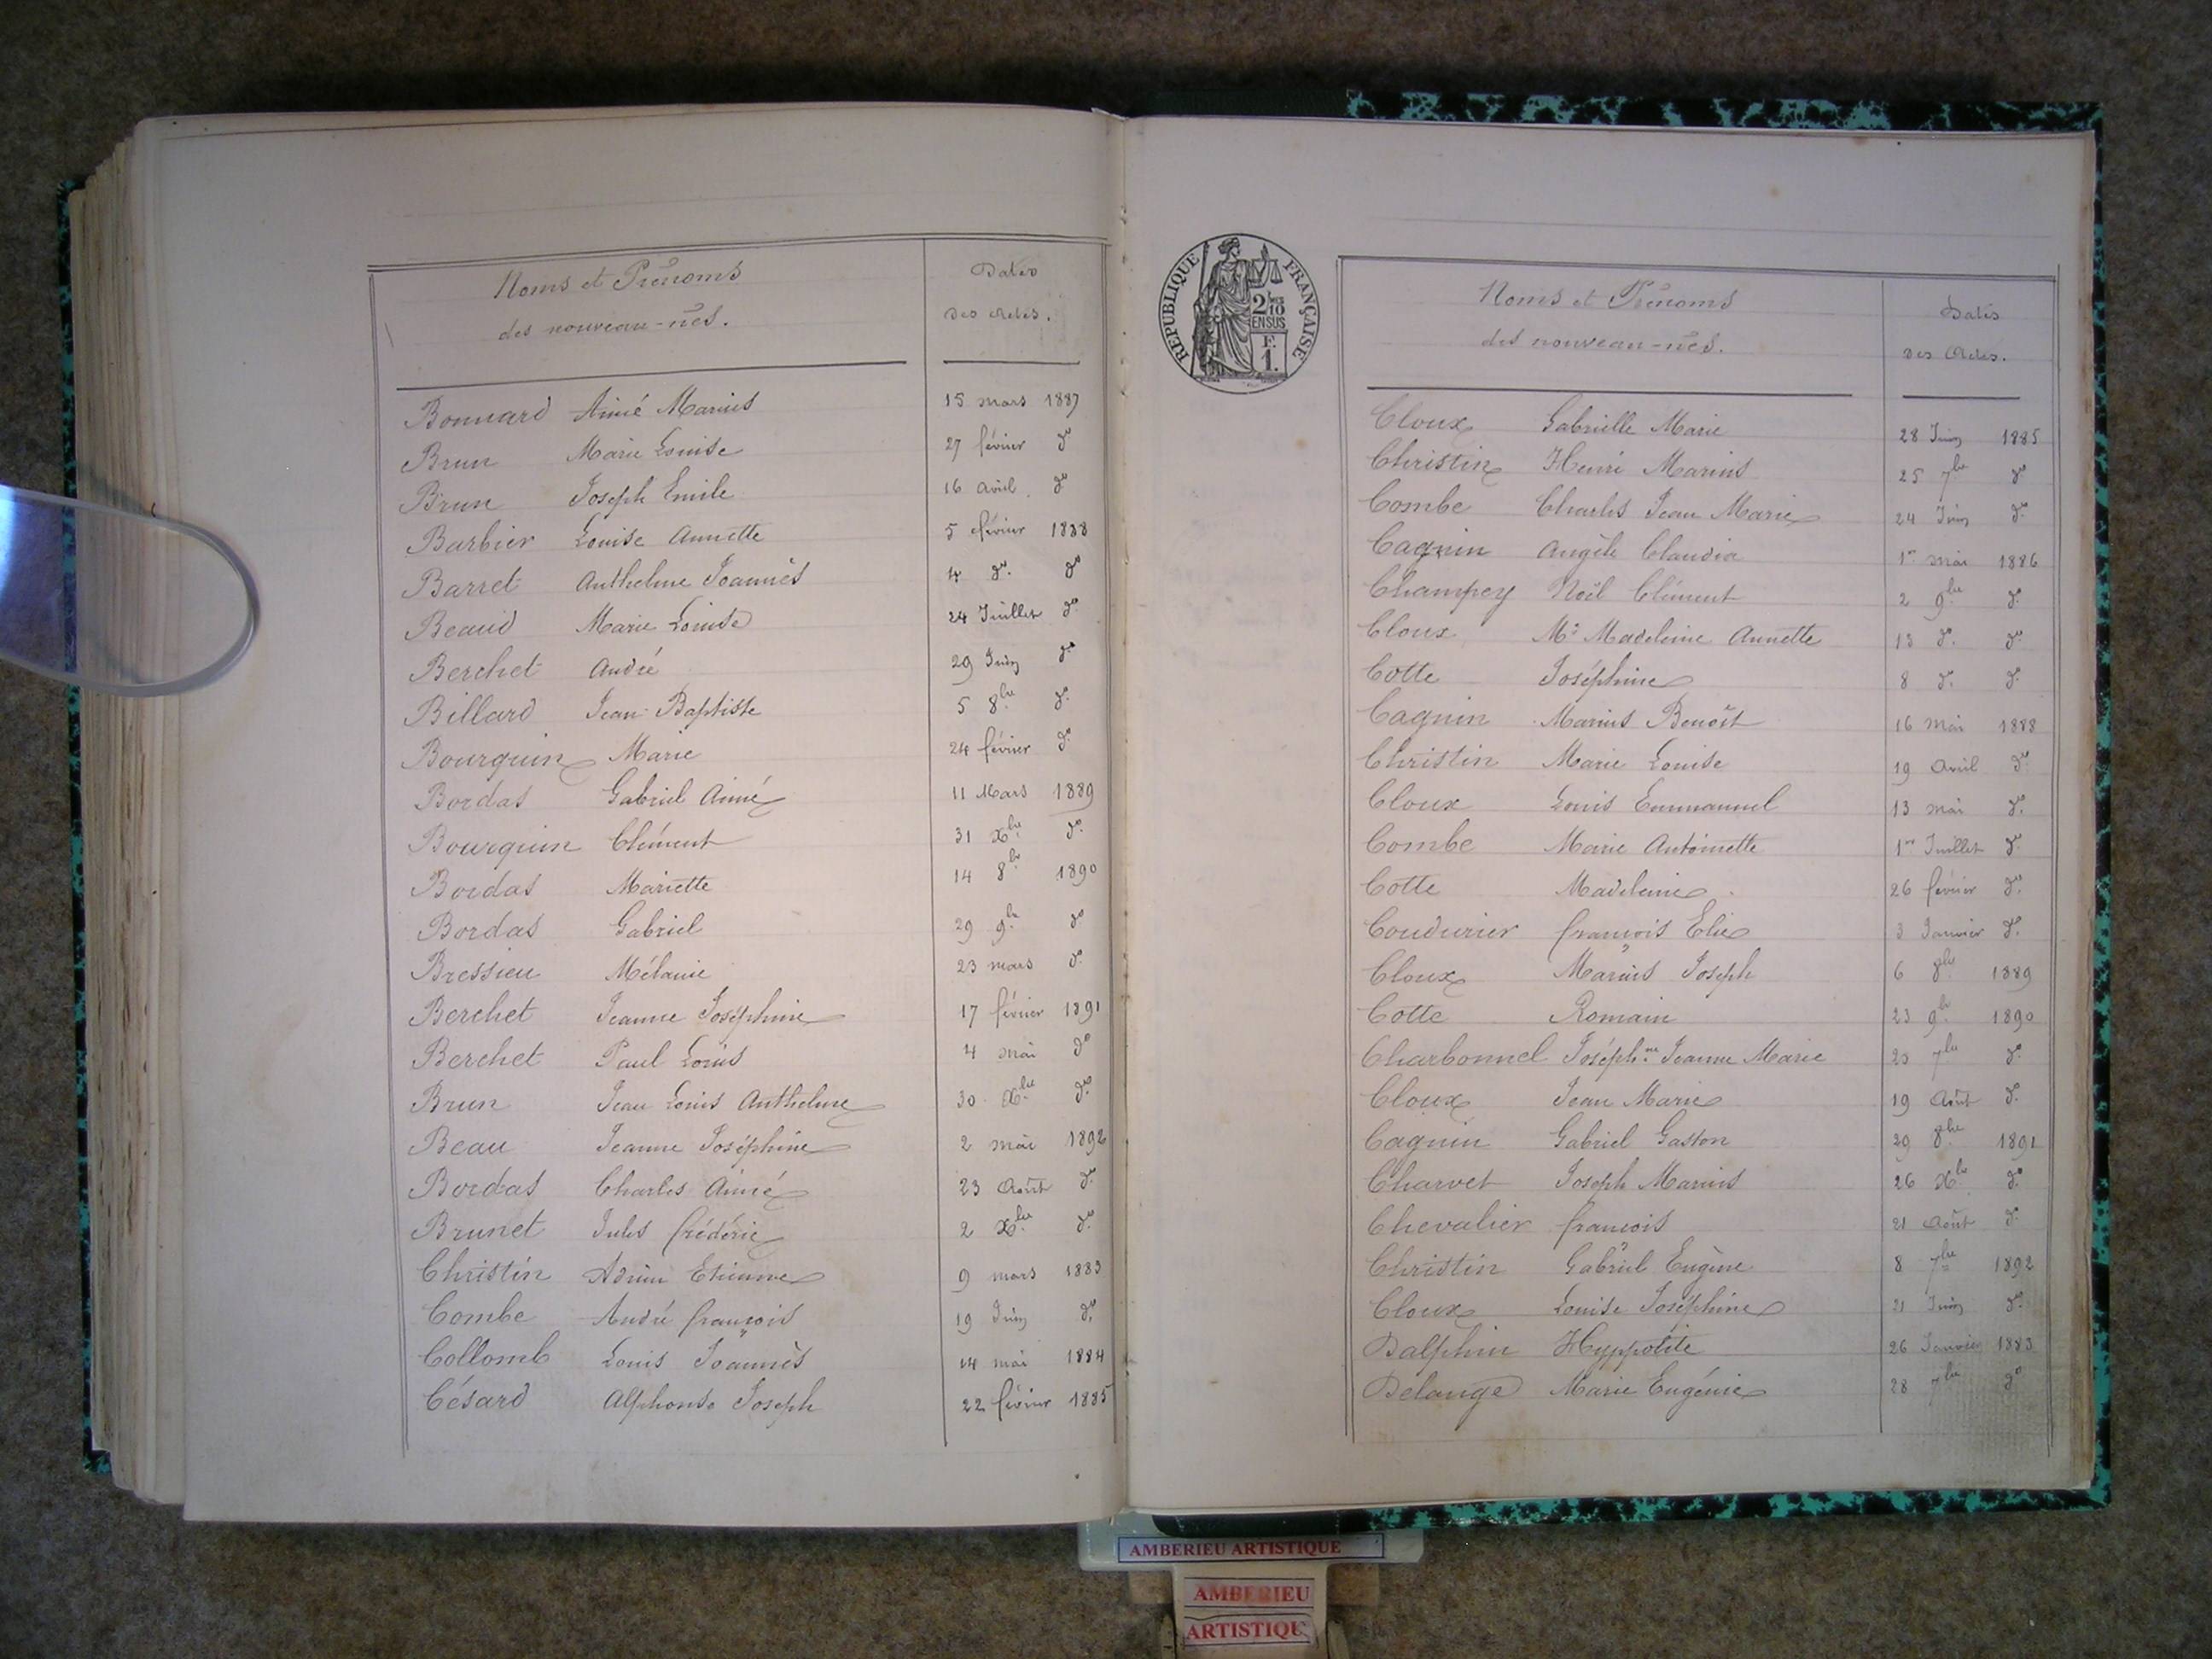 Noms et Prénoms
des nouveau-nés.
Dates
des Actes.
Bonnard Aimé Marius 15 mars 1887
Brun Marie Louise 27 février do
Brun Joseph Emile 16 avril do
Barbier Louise Annette 5 février 1888
Barret Anthelme Joannès 4 do. do
Beaud Marie Louise 24 Juillet do
Berchet André 29 Juin do
Billard Jean-Baptiste 5 8bre do
Bourguin Marie 24 février do
Bordas Gabriel Aimé 11 Mars 1889
Bourguin Clément 31 Xbre do
Bordas Mariette 14 8bre 1890
Bordas Gabriel 29 9bre do
Bressieu Mélanie 23 mars do
Berchet Jeanne Joséphine 17 février 1891
Berchet Paul Louis 4 mai do
Brun Jean Louis Anthelme 30 Xbre do
Beau Jeanne Joséphine 2 mai 1892
Bordas Charles Aimé 23 Août do
Brunet Jules frédéric 2 Xbre do
Christin Adrien Etienne 9 mars 1883
Combe André françois 19 Juin do
Collomb Louis Joannès 14 mai 1884
Césard Alphonse Joseph 22 février 1885
REPUBLIQUE FRANÇAISE
2/10
EN SUS
F.
1.
Noms et Prénoms
des nouveau-nés.
Dates
des Actes.
Cloux Gabrielle Marie 28 Juin 1885
Christin Henri Marius 25 7bre do
Combe Charles Jean Marie 24 Juin do
Cagnin Angèle Claudia 1er mai 1886
Champey Noël Clément 2 9bre do
Cloux Mie Madeleine Annette 13 do. do
Cotte Joséphine 8 do. do
Cagnin Marius Benoît 16 mai 1888
Christin Marie Louise 19 Avril do
Cloux Louis Emmanuel 13 mai do
Combe Marie Antoinette 1er Juillet do
Cotte Madeleine 26 février do
Coudurier françois Elie 3 Janvier do
Cloux Marius Joseph 6 8bre 1889
Cotte Romain 23 9bre 1890
Charbonnel Joséphne Jeanne Marie 23 7bre do
Cloux Jean Marie 19 Août do
Cagnin Gabriel Gaston 29 8bre 1891
Charvet Joseph Marius 26 Xbre do
Chevalier françois 21 Août do
Christin Gabriel Eugène 8 7bre 1892
Cloux Louise Joséphine 21 Juin do
Dalphin Hyppolite 26 Janvier 1883
Delange Marie Eugénie 28 7bre do
AMBERIEU ARTISTIQUE
AMBERIEU
ARTISTIQU